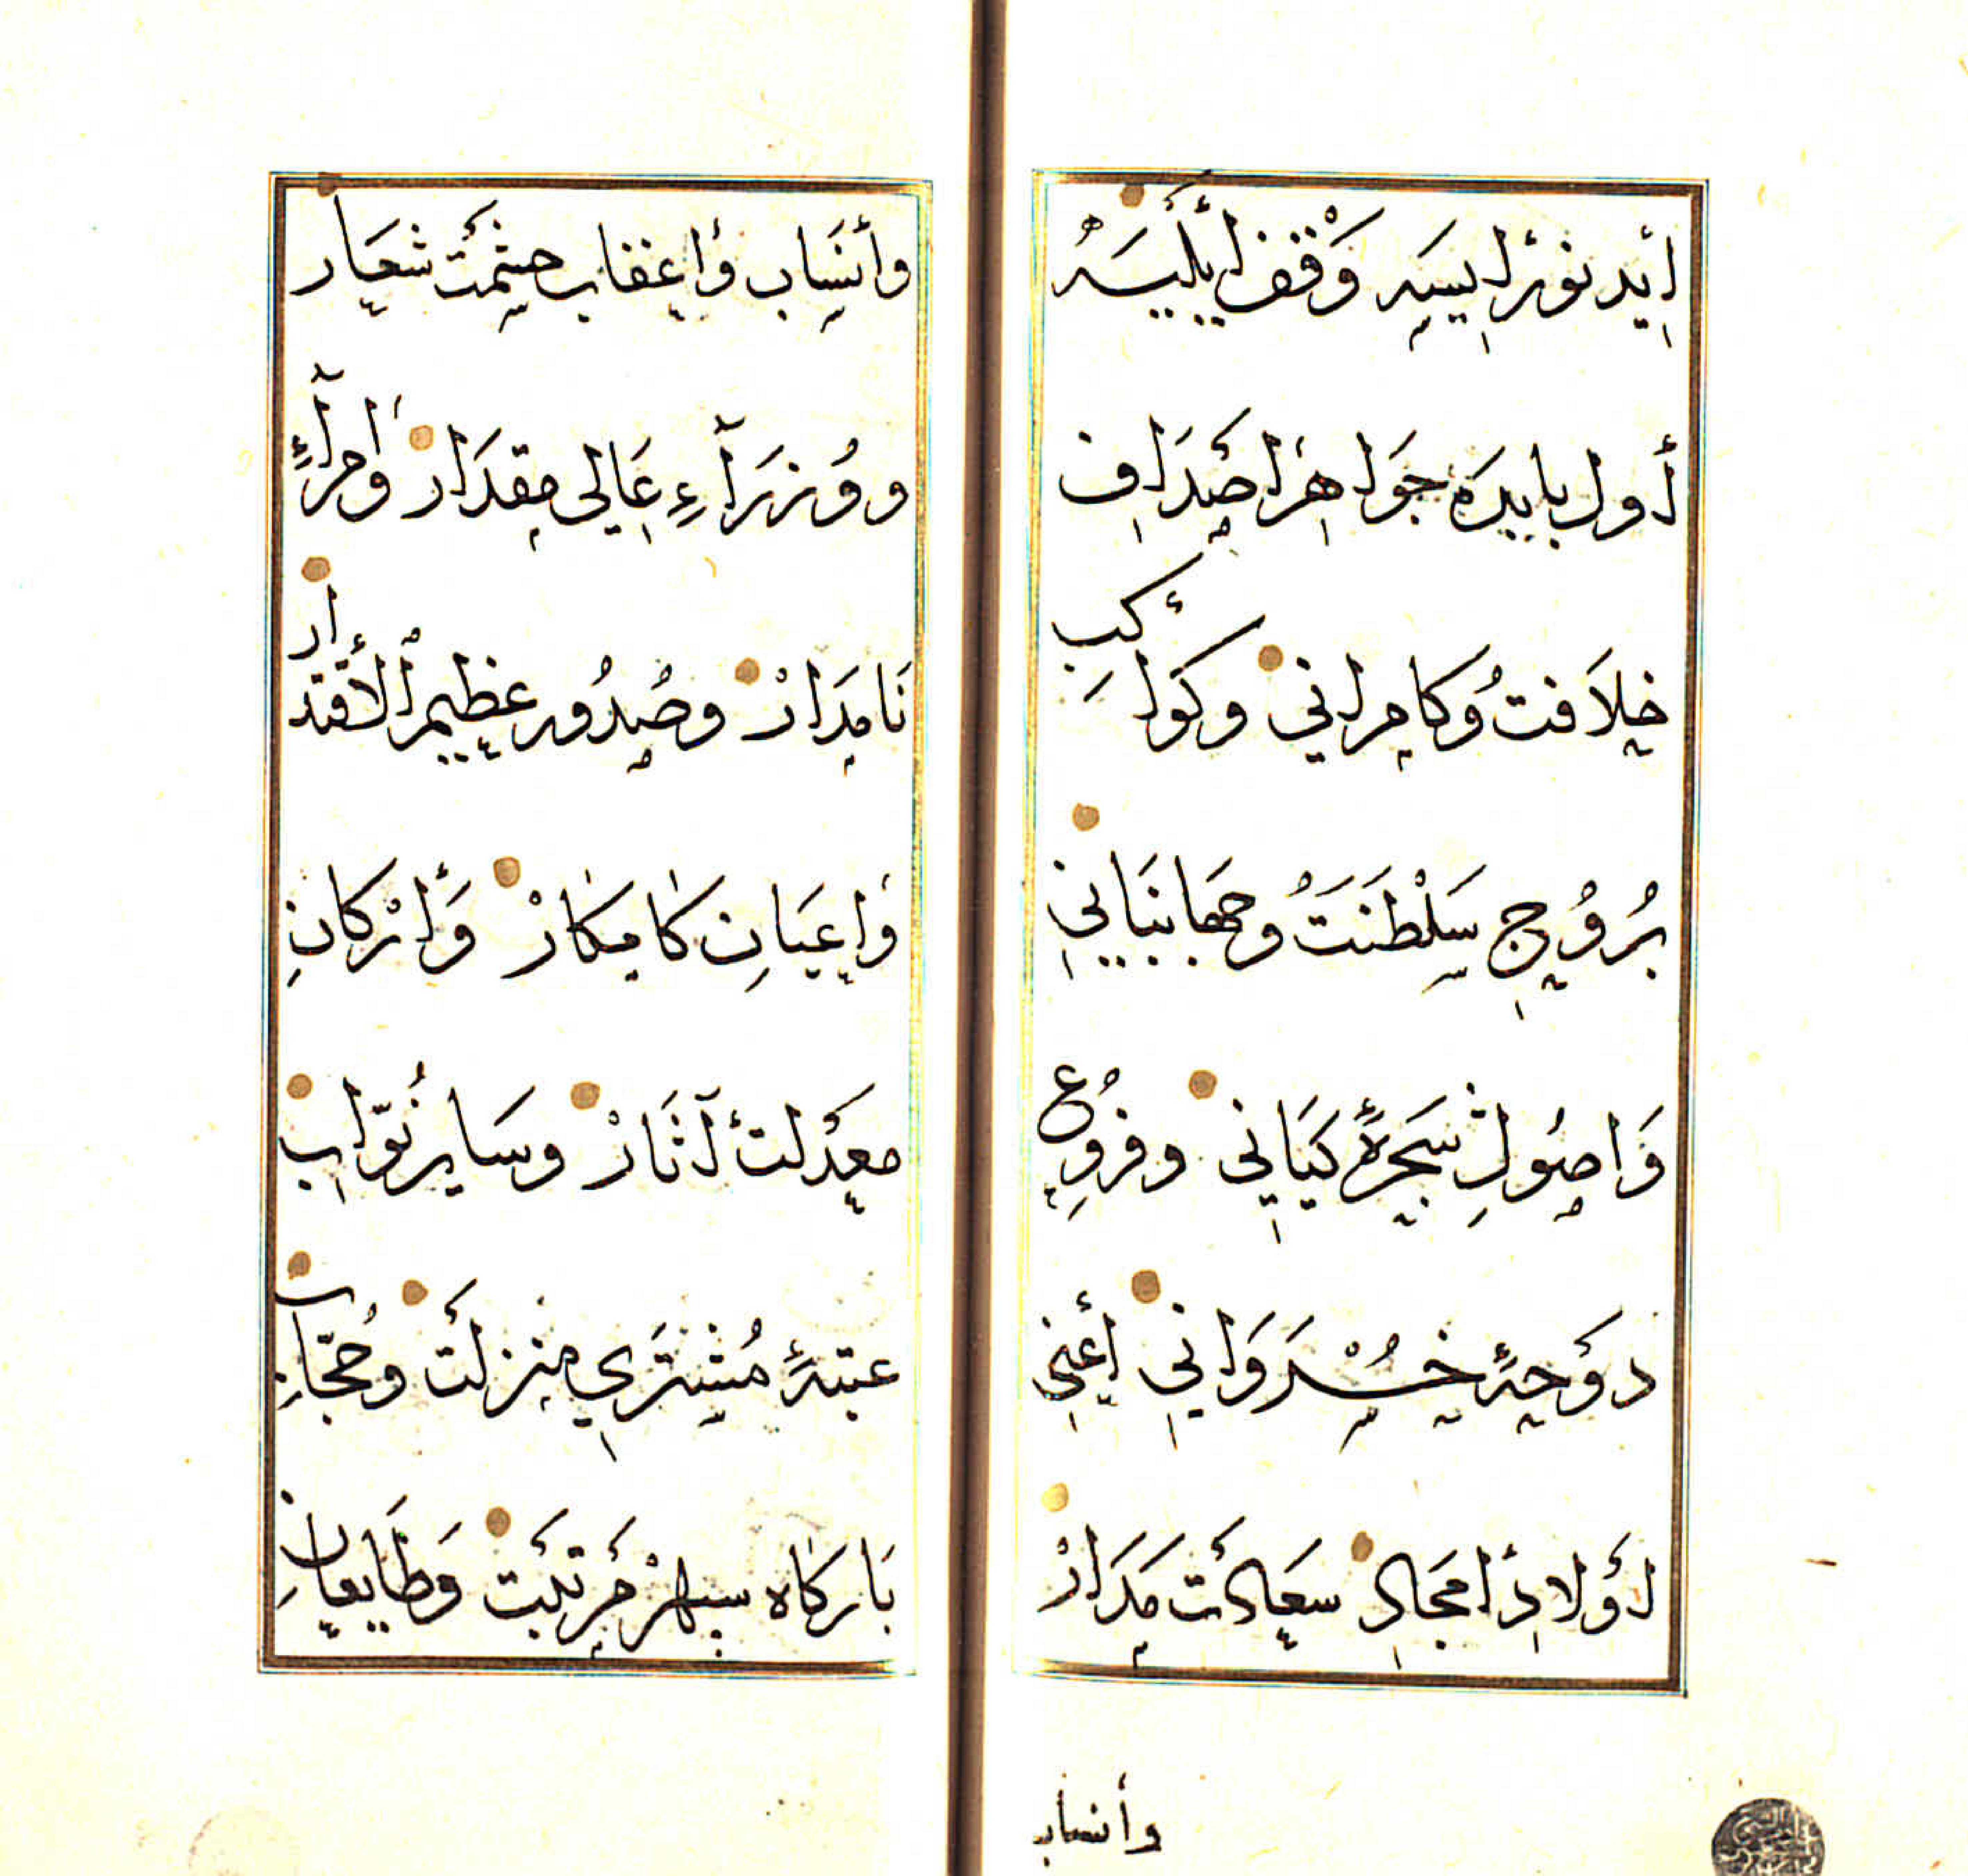 ايدنور ايسه وقف ايليه
أول بابيده جواهر اصداف
خلافت وكامراني وكواكب
بروج سلطنت وجهانباني
واصول شجرۀ كياني وفروع
دوحۀ خسرواني أعني
أولاد امجاد سعادت مدار
وأنساب
وأنساب وأعقاب حشمت شعار
ووزرآء عالي مقدار وامرآء
نامدار وصدور عظيم الأقتدار
واعيان كامكار وأركان
معدلت آثار وساير نوّاب
عتبۀ مشتري منزلت وحجّاب
باركاه سپهر مرتبت وطايفان